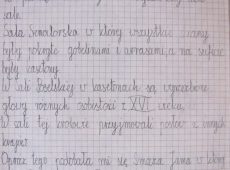 sale.
Sala Senatorska w której wszystkie ściany
były pokryte gobelinami i arrasami, a na suficie
były kasetony.
W sali Poselskiej w kasetonach są wyrzeźbione
głowy różnych osobistości z XVI wieku.
W sali tej królowie przyjmowali posłów z innych
krajów.
Oprócz tego podobała mi się smocza Jama w której